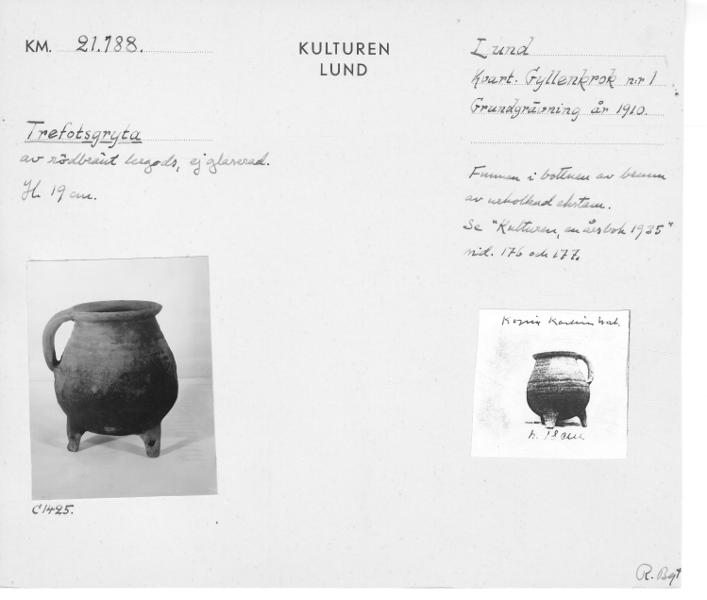 KM. 21.188.
KULTUREN
LUND
Lund
Kvart. Gyllenkrok nr 1
Grundgrävning år 1910.
Trefotsgryta
av rödbränt lergods, ej glaserad.
H. 19 cm.
Funnen i bottnen av brunn
av urholkad ekstam.
Se "Kulturen, en årsbok 1935"
sid. 176 och 177.
h. 18 cm.
C1425.
R. Bgt